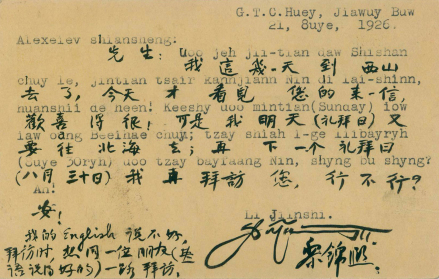 G.T.C.Huey, Jiawuy Buw
21, 8uye, 1926.
Alexelev shianseng:
先生: Uoo jeh jii-tian daw Shishan
我這幾天到西山
chuy le, jintian tsair kannjiann Nin di lai-shinn,
去了,今天才看見您的来信
huanshii de heen! Keeshy uoo mintian(Sunday) iow
歡喜得很!可是我明天(礼拜日)又
law uang Beeihae chuy; tzay shiah i-ge liibayryh
要往北海去;再下一个礼拜日
(8uye 30ryh) uoo tzay bayfaang Nin, shyng bu shyng?
(八月三十日)我再拜訪您,行不行?
An!
安!
Li Jiinshi.
黎錦熙
我的English說不好,
拜訪时,想同一位朋友(英
語說的好的)一路拜訪。